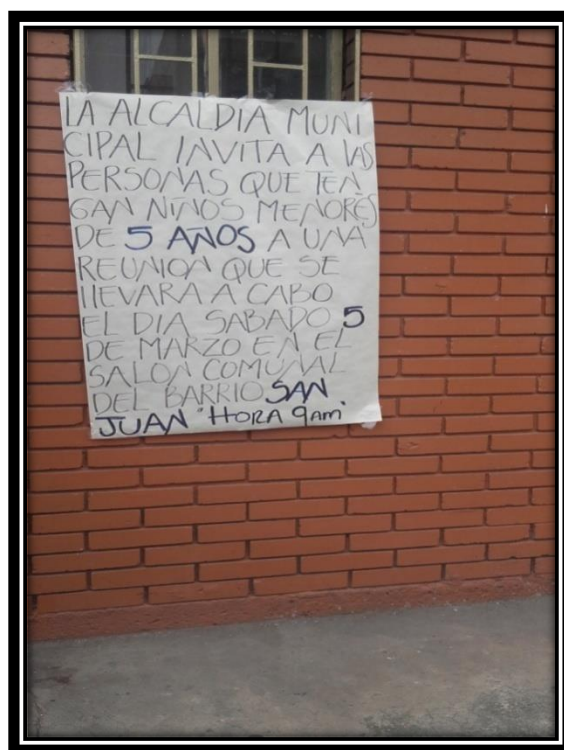 LA ALCALDIA MUNI
CIPAL INVITA A LAS
PERSONAS QUE TEN
GAN NIÑOS MENORES
DE 5 AÑOS A UNA
REUNION QUE SE
llEVARA A CABO
EL DIA SABADO 5
DE MARZO EN EL
SALON COMUNAL
DEL BARRIO SAN
JUAN "HORA 9am"